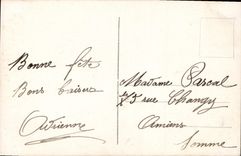 Bonne fête
Bons baisers
Adrienne
Madame Pascal
75 rue Changy
Amiens
Somme